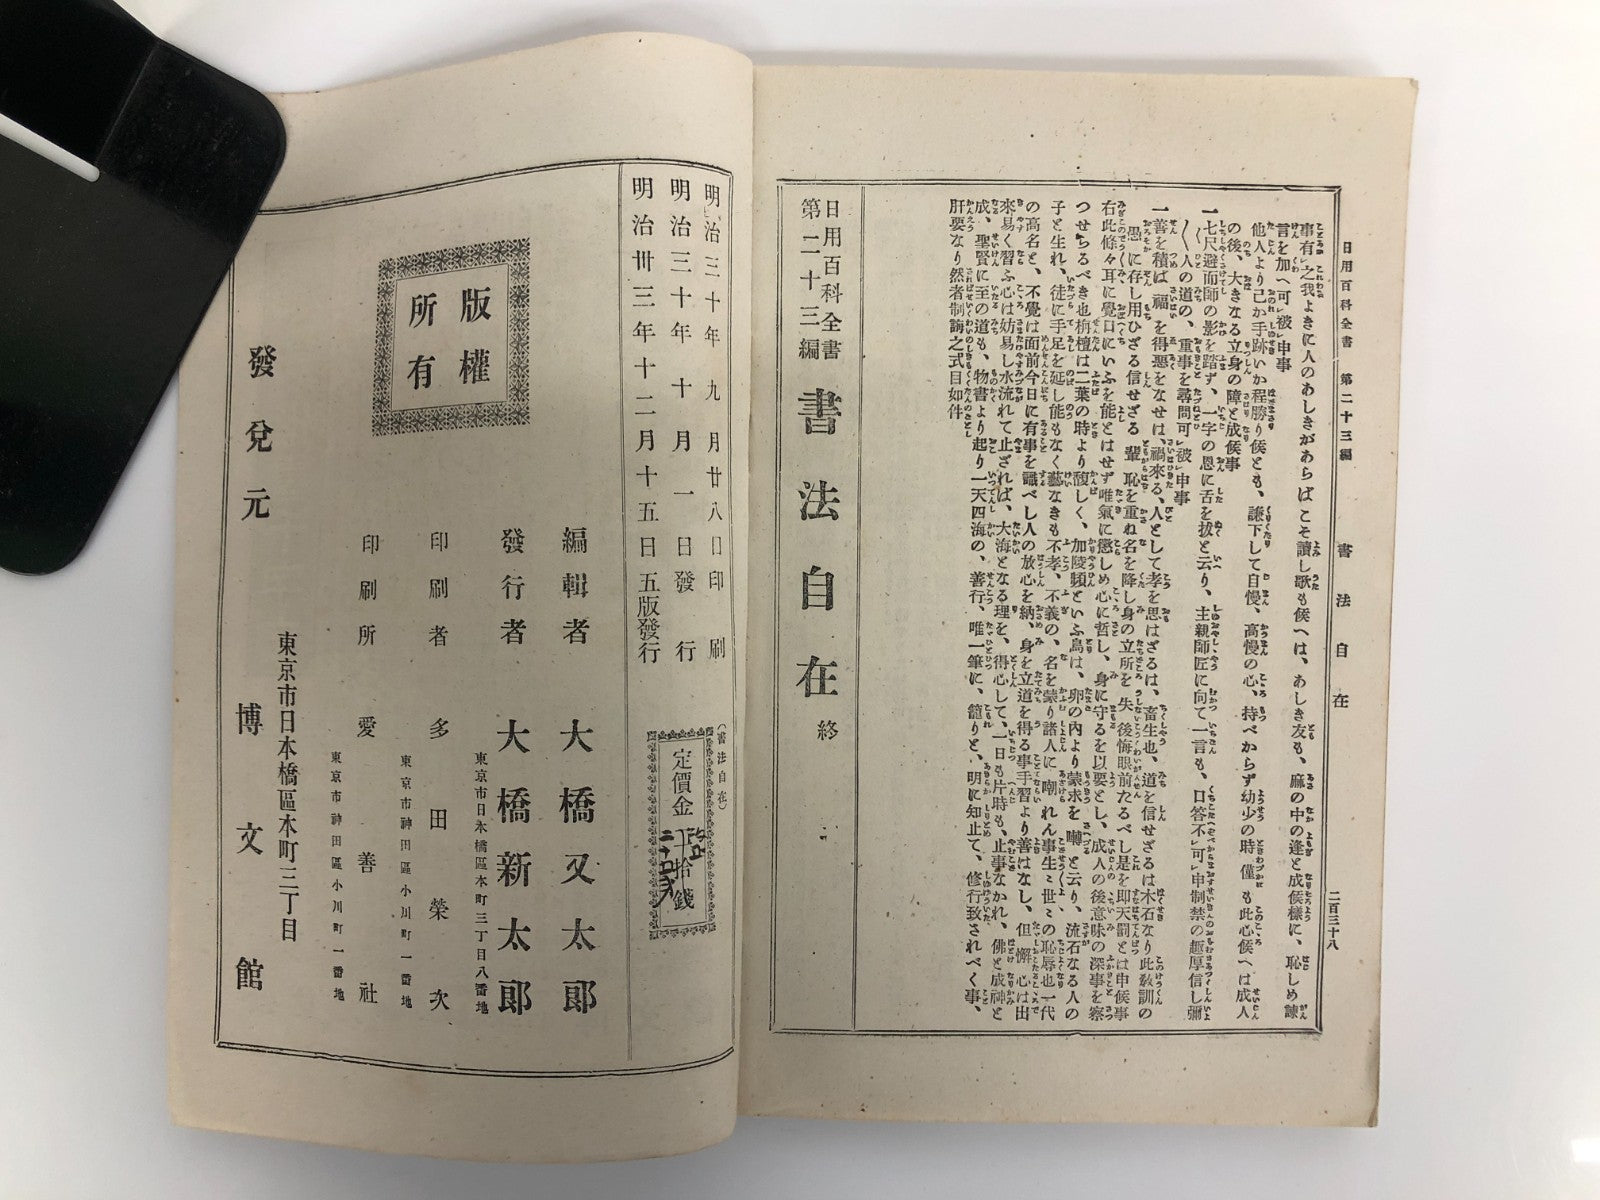 日用百科全書 第二十三編 書法自在 二百三十八
事有㆑之我よきに人のあしきがあらばこそ讀し歌も候へは、あしき友も、麻の中の逢と成候樣に、恥しめ諫
言を加へ可㆑被㆑申事
他人より己か手跡いか程勝り候とも、謙下して自慢、高慢の心、持べからず幼少の時僅も此心候へは成人
の後、大きなる立身の障と成候事
一七尺避而師の影を踏ず、一字の恩に舌を拔と云り、主親師匠に向て一言も、口答不㆑可㆑申制禁の趣厚信し彌
〱人の道の、重事を尋問可㆑被㆑申事
一善を積ば福を得惡をなせは、禍來る、人として孝を思はざるは、畜生也、道を信せざるは木石なり此敎訓の
愚に存し用ひざる信せざる輩恥を重ね名を降し身の立所を失後悔眼前たるべし是を即天罰とは申候事
右此條々耳に覺口にいふを能とはせず唯氣に懲しめ心に哲し、身に守るを以要とし、成人の後意味の深事を察
つせらるべき也栴檀は二葉の時より馥しく、加陵頻といふ鳥は、卵の內より蒙求を囀と云り、流石なる人の
子と生れ、徒に手足を延し能もなく藝なきも不孝、不義の、名を蒙り諸人に嘲れん事生〻世〻の恥辱也一代
の高名と、不覺は面前今日に有事を讖べし人の放心を納、身を立道を得る事手習より善はなし、但懈心は出
來易く習ふ心は妨易し水流れて止ざれば、大海となる理を、得心して、一日も片時も、止事なかれ、佛と成神と
成、聖賢に至の道も、物書より起り一天四海の、善行、唯一筆に、籠りと、明に知止て、修行致されべく事、
肝要なり然者制誨之式目如件
日用百科全書
第二十三編
書法自在 終
明治三十年九月廿八日印刷
明治三十年十月一日發行
明治卅三年十二月十五日五版發行
(書法自在)
定價金
拾錢
版權
所有
編輯者 大橋又太郎
發行者 大橋新太郎
東京市日本橋區本町三丁目八番地
印刷者 多田榮次
東京市神田區小川町一番地
印刷所 愛善社
東京市神田區小川町一番地
東京市日本橋區本町三丁目
發兌元 博文館